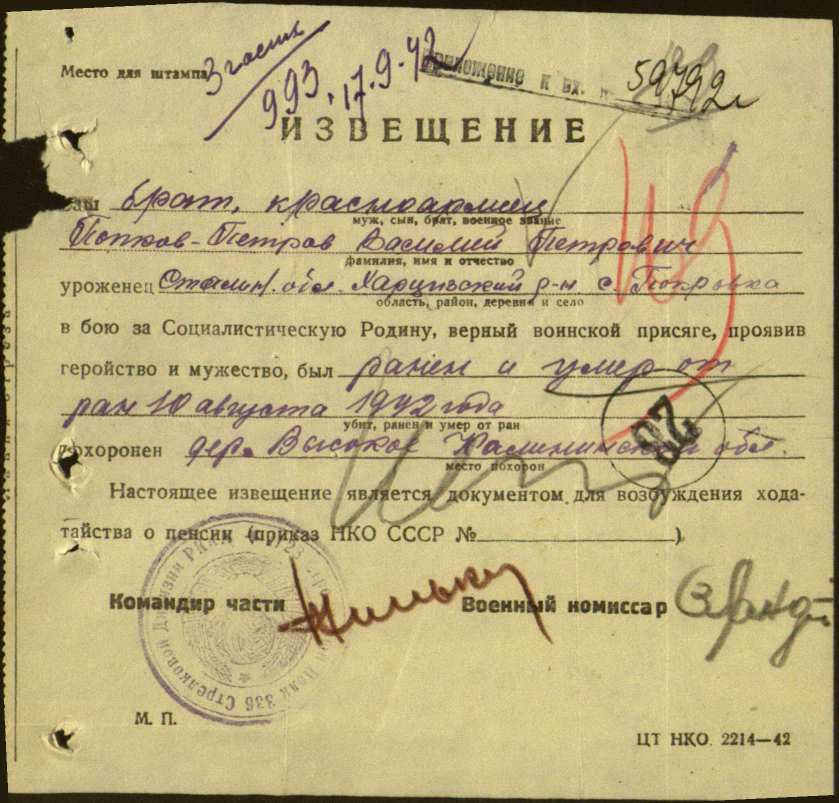 Место для штампа
993. 17.9.42
приложение к вх. №
59792
ИЗВЕЩЕНИЕ
Ваш брат, красноармеец
муж, сын, брат, военное звание
Попков-Петров Василий Петрович
фамилия, имя и отчество
уроженец Сталин. обл. Харцызский р-н с. Покровка
область, район, деревня и село
в бою за Социалистическую Родину, верный воинской присяге, проявив
геройство и мужество, был ранен и умер от
ран 10 августа 1942 года
убит, ранен и умер от ран
похоронен дер. Высокое Калининской обл.
место похорон
28
Настоящее извещение является документом для возбуждения хода-
тайства о пенсии (приказ НКО СССР № ).
Командир части
Военный комиссар
Стрелковой Дивизии
336
М. П.
ЦТ НКО. 2214—42